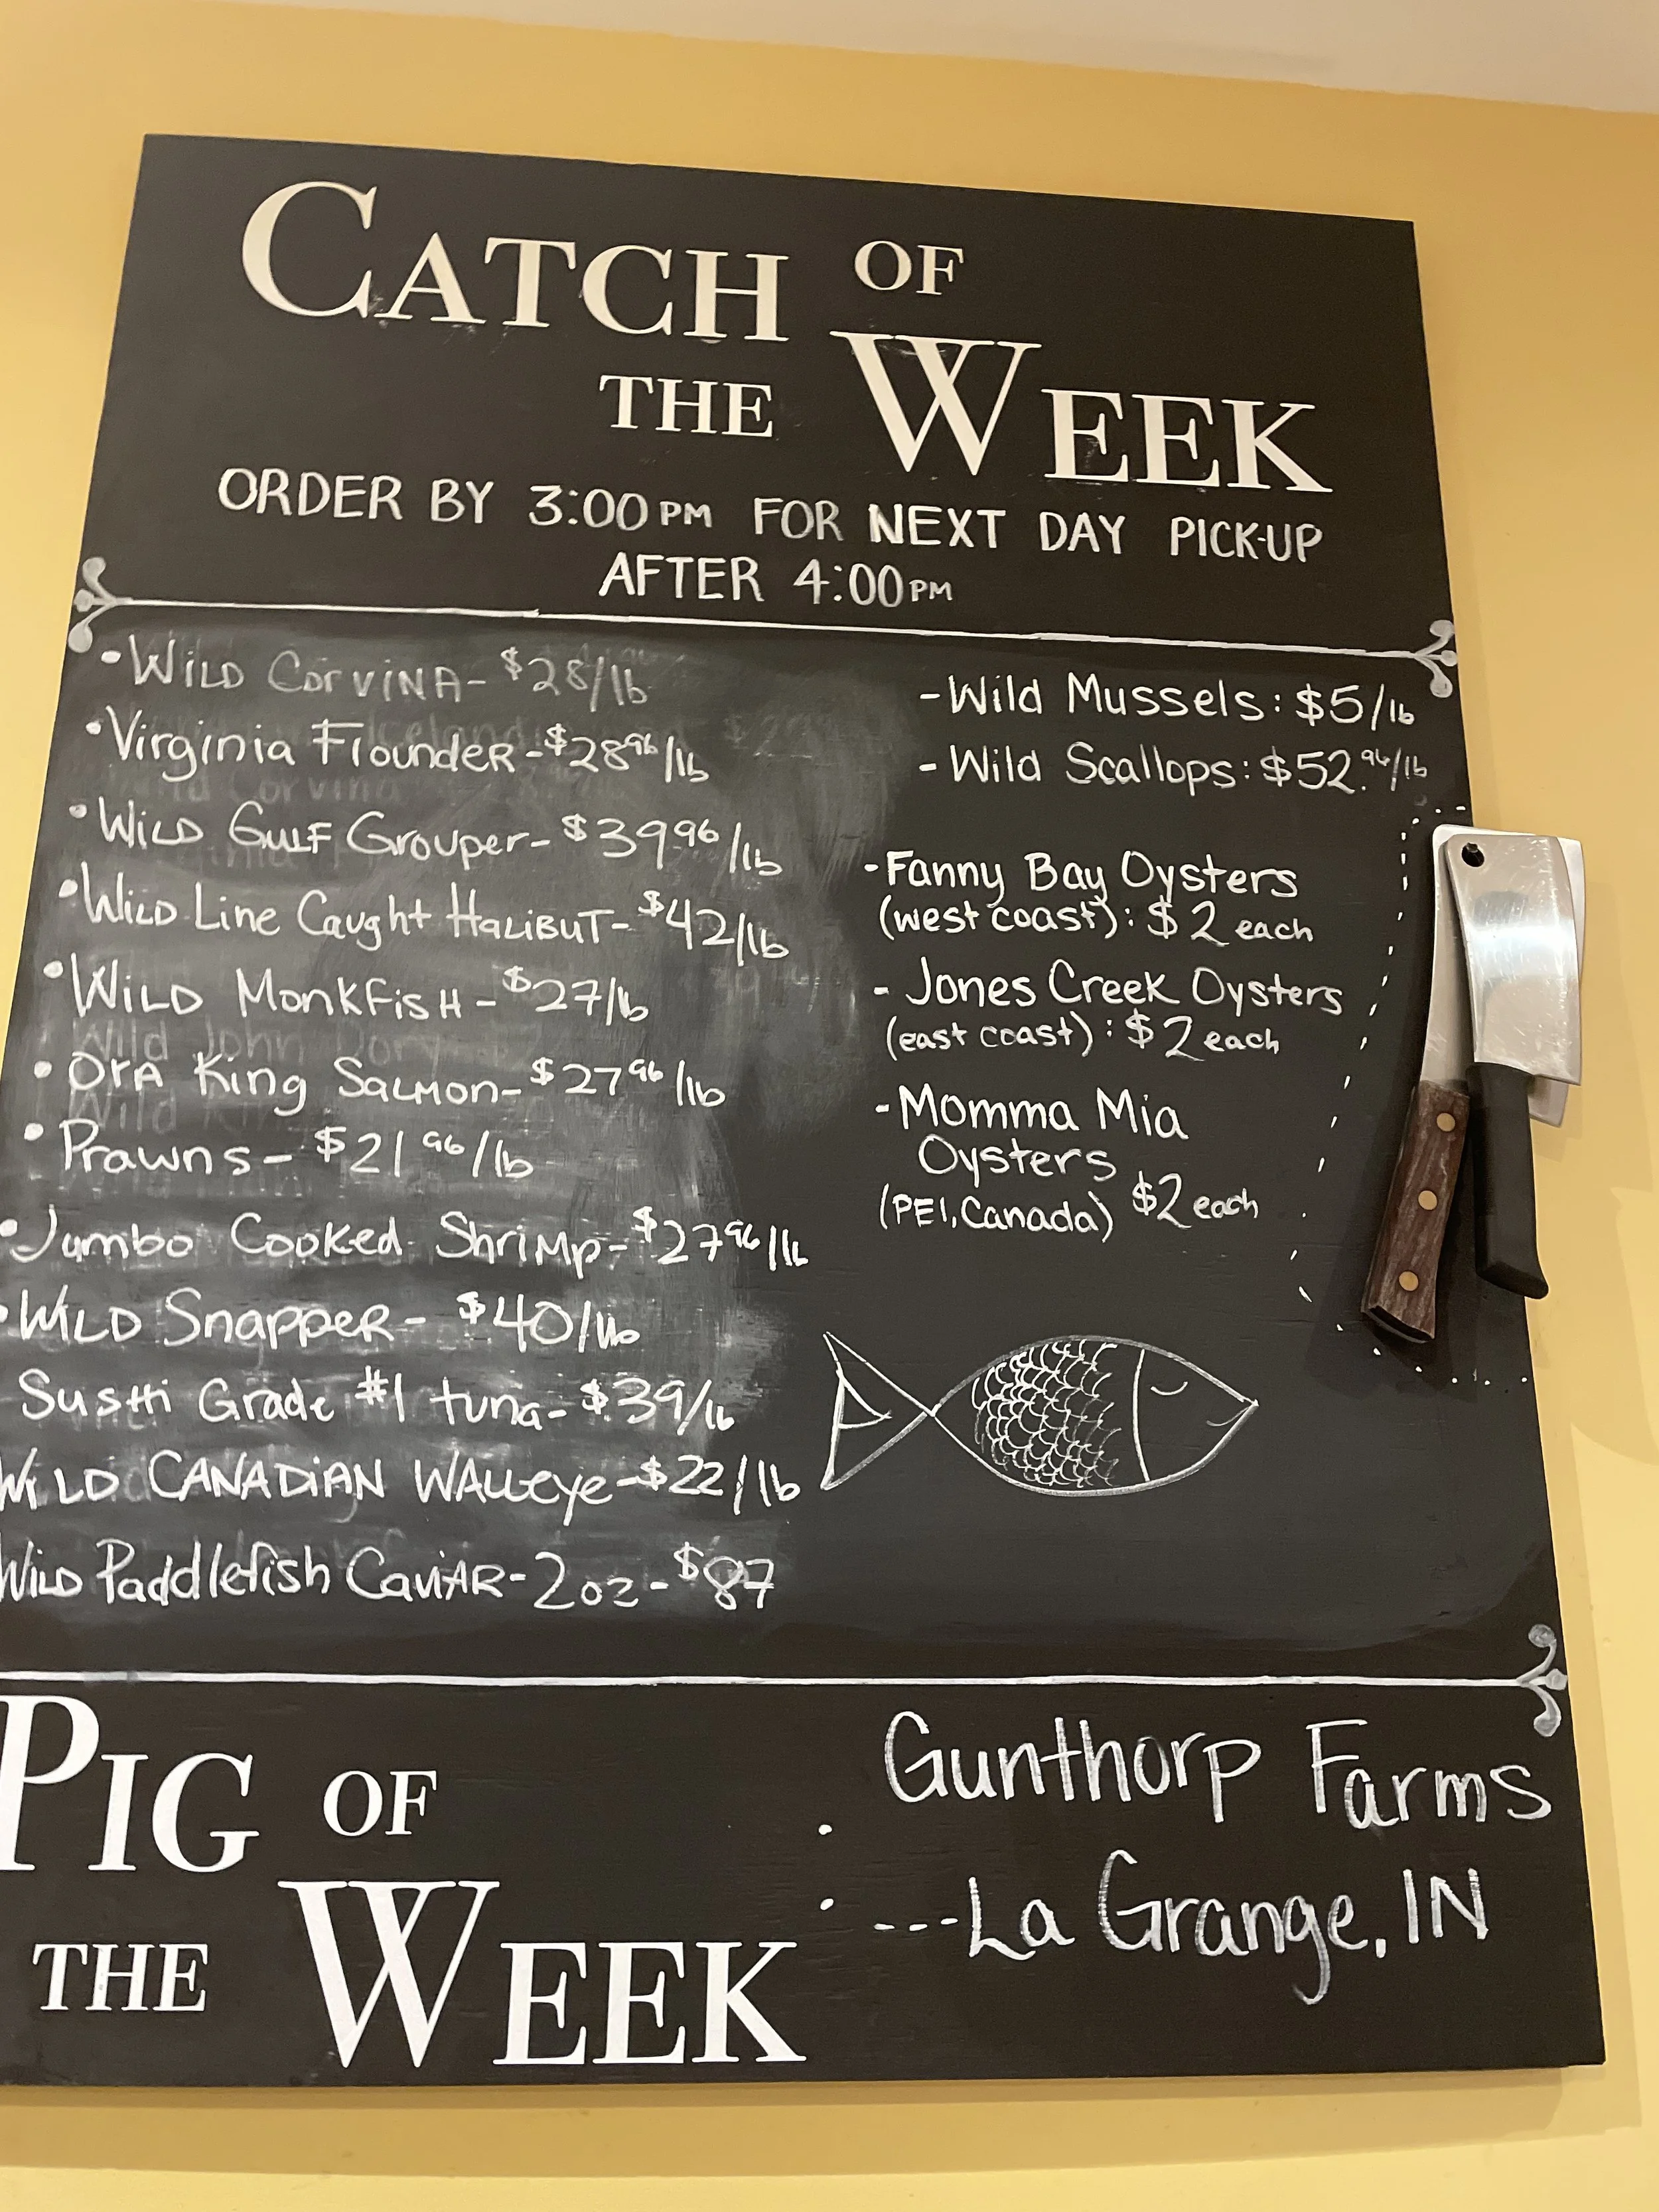 CATCH OF
THE WEEK
ORDER BY 3:00PM FOR NEXT DAY PICK-UP
AFTER 4:00PM
•WILD CORVINA-$28/lb
•Virginia Flounder-$28 96/lb
•WILD GULF Grouper-$39 96/lb
•WILD Line Caught HALIBUT-$42/lb
•WILD MonkFisH-$27/lb
•OrA King SALMON-$27 96/lb
•Prawns-$21 96/lb
•Jumbo Cooked Shrimp-$27 96/lb
•WILD Snapper-$40/lb
Sushi Grade #1 tuna-$39/lb
WILD CANADIAN WALLeye-$22/lb
WILD Paddlefish CaviAR-2oz-$87
-Wild Mussels: $5/lb
-Wild Scallops: $52.96/lb
-Fanny Bay Oysters
(west coast): $2 each
-Jones Creek Oysters
(east coast): $2 each
-Momma Mia
Oysters
(PEI, Canada) $2 each
PIG OF
THE WEEK
: Gunthorp Farms
---La Grange, IN